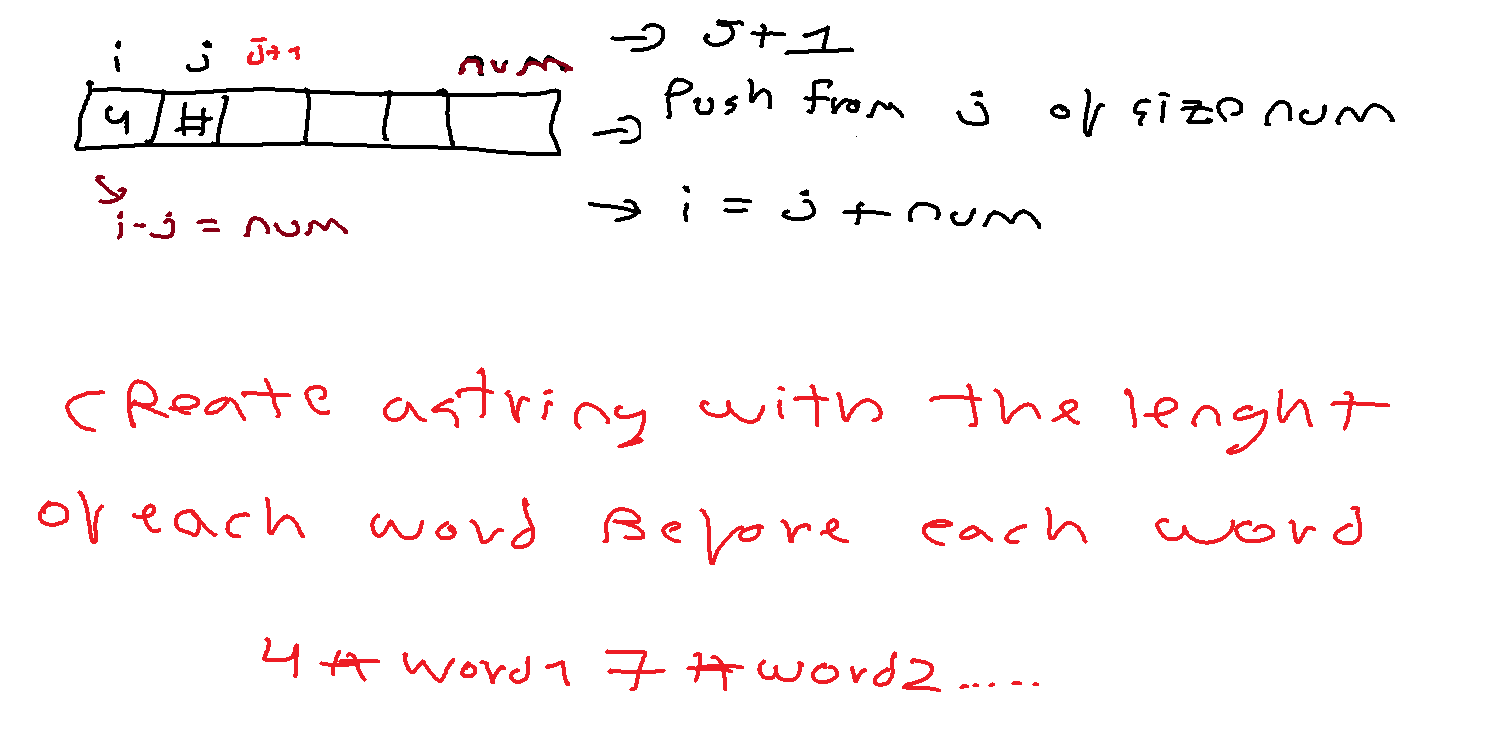 → J+1
i j J+1 num
4 #
Push from j of size num
i-j = num
→ i = j + num
create a string with the lenght
of each word Before each word
4 # word1 7 # word2 .....